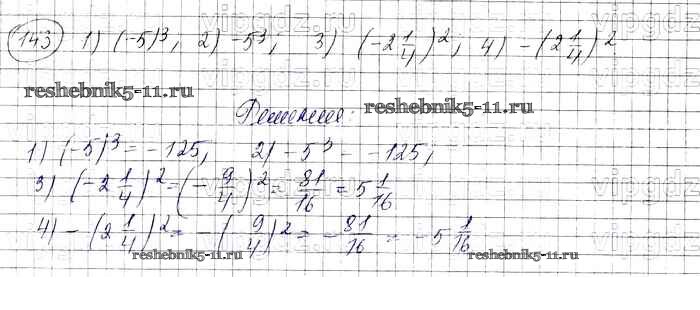 143 1) (-5)³, 2) -5³; 3) (-2 1/4)²; 4) -(2 1/4)²
Решение:
1) (-5)³ = -125, 2) -5³ - -125;
3) (-2 1/4)² = (-9/4)² = 81/16 = 5 1/16
4) -(2 1/4)² = -(9/4)² = -81/16 = -5 1/16
reshebnik5-11.ru
reshebnik5-11.ru
reshebnik5-11.ru
reshebnik5-11.ru
vipgdz.ru
vipgdz.ru
vipgdz.ru
vipgdz.ru